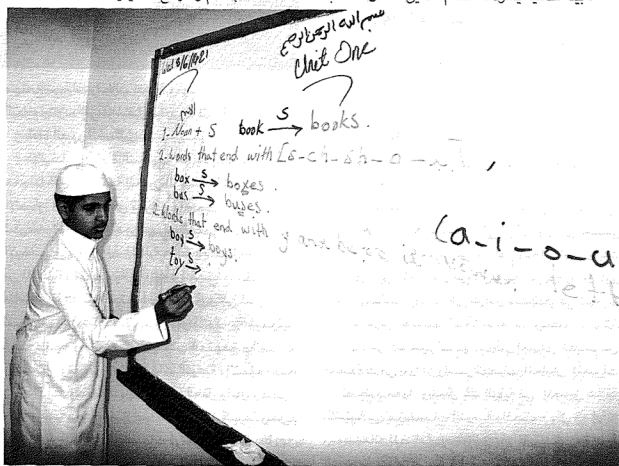 Wed 8/6/1421
بسم الله الرحمن الرحيم
Unit One
الاسم
1- Noun + S book S→ books.
2- Words that end with [s-ch-sh-o-x],
box S→ boxes.
bus S→ buses.
2. Words that end with y and before it
(a-i-o-u
boy S→ boys.
toy S→